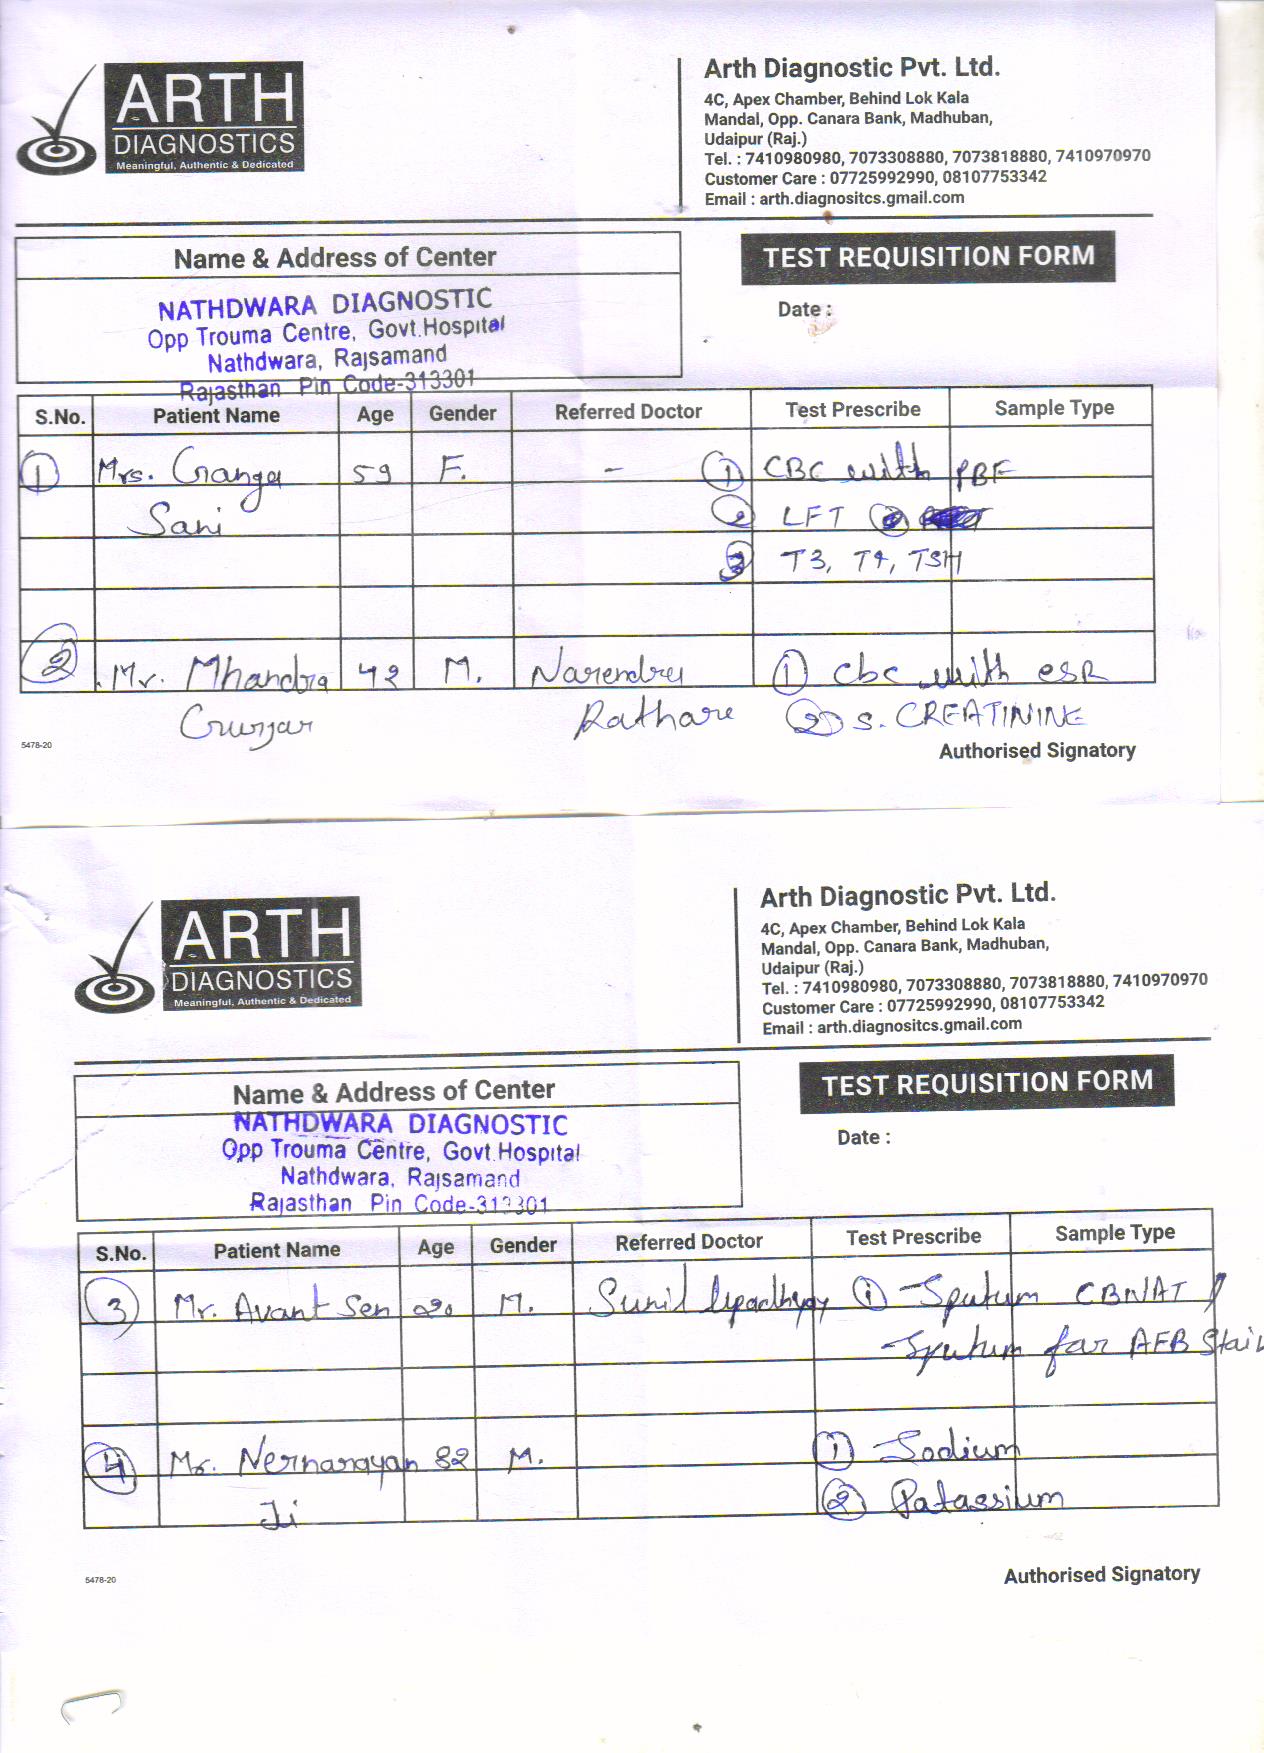 ARTH
DIAGNOSTICS
Meaningful, Authentic & Dedicated
Arth Diagnostic Pvt. Ltd.
4C, Apex Chamber, Behind Lok Kala
Mandal, Opp. Canara Bank, Madhuban,
Udaipur (Raj.)
Tel. : 7410980980, 7073308880, 7073818880, 7410970970
Customer Care : 07725992990, 08107753342
Email : arth.diagnositcs.gmail.com
Name & Address of Center
TEST REQUISITION FORM
NATHDWARA DIAGNOSTIC
Opp Trouma Centre, Govt.Hospital
Nathdwara, Rajsamand
Rajasthan Pin Code-313301
Date :
S.No. Patient Name Age Gender Referred Doctor Test Prescribe Sample Type
1 Mrs. Ganga 59 F. - 1 CBC with PBF
Sani 2 LFT
3 T3, T4, TSH
2 Mr. Mhandra 42 M. Narendra 1 Cbc with ESR
Gurjar Rathore 2 S. CREATININE
5478-20
Authorised Signatory
ARTH
DIAGNOSTICS
Meaningful, Authentic & Dedicated
Arth Diagnostic Pvt. Ltd.
4C, Apex Chamber, Behind Lok Kala
Mandal, Opp. Canara Bank, Madhuban,
Udaipur (Raj.)
Tel. : 7410980980, 7073308880, 7073818880, 7410970970
Customer Care : 07725992990, 08107753342
Email : arth.diagnositcs.gmail.com
Name & Address of Center
TEST REQUISITION FORM
NATHDWARA DIAGNOSTIC
Opp Trouma Centre, Govt.Hospital
Nathdwara, Rajsamand
Rajasthan Pin Code-313301
Date :
S.No. Patient Name Age Gender Referred Doctor Test Prescribe Sample Type
3 Mr. Avant Sen 20 M. Sunil Upadhyay 1 Sputum CBNAT /
Sputum for AFB Stain
4 Mr. Nernarayan 82 M. 1 Sodium
Ji 2 Patassium
5478-20
Authorised Signatory